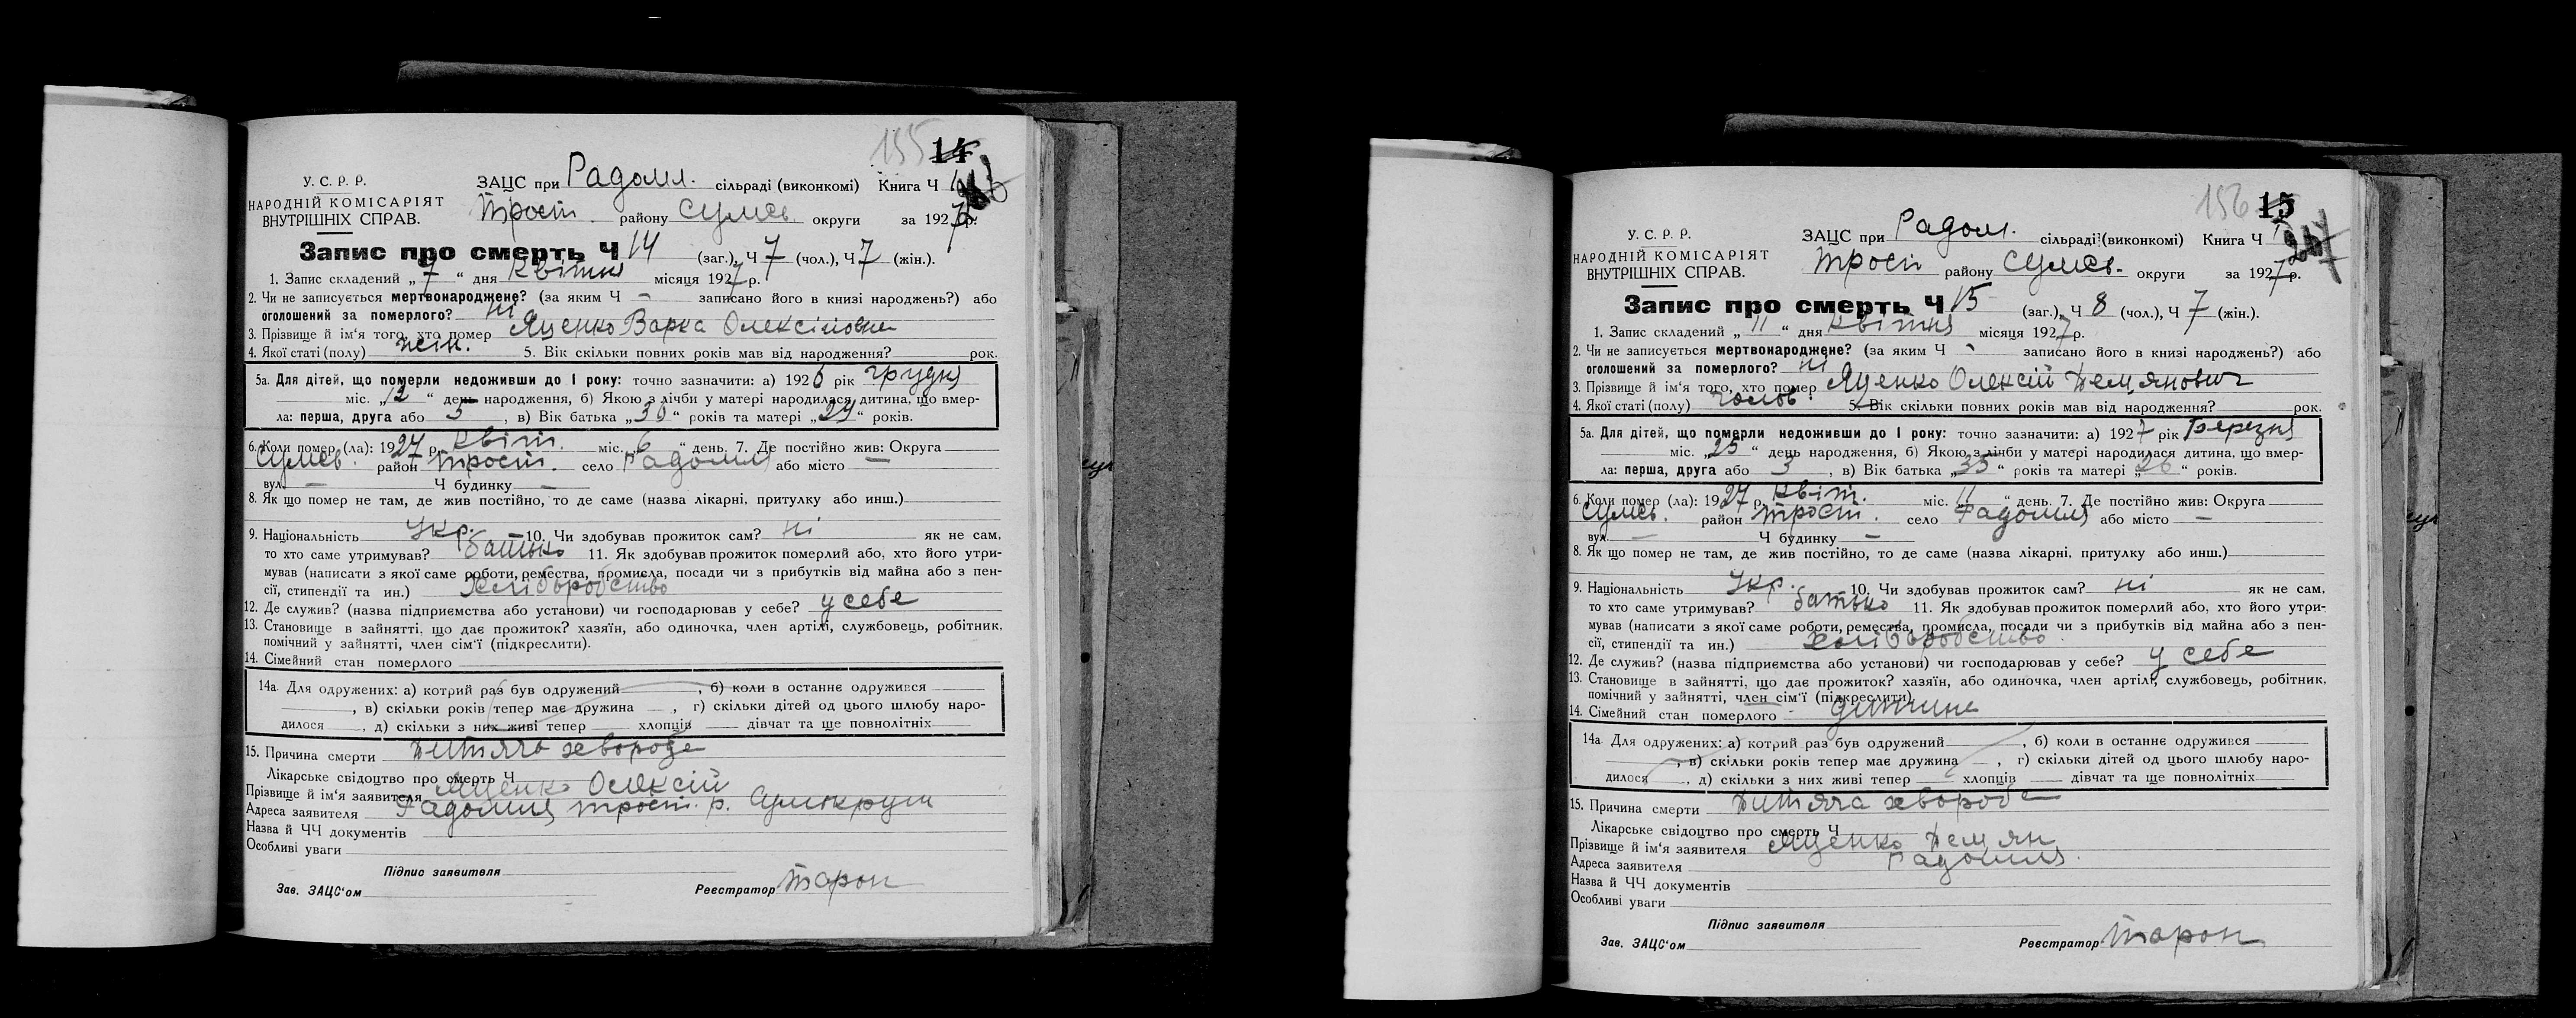 155 14
У. С. Р. Р.
НАРОДНІЙ КОМІСАРІЯТ
ВНУТРІШНІХ СПРАВ.
ЗАЦС при Радомл. сільраді (виконкомі) Книга Ч 1
Трост. району Сумсь. округи за 1927 р.
Запис про смерть Ч 14 (заг.), Ч 7 (чол.), Ч 7 (жін.).
1. Запис складений „7“ дня Квітня місяця 1927 р.
2. Чи не записується мертвонароджене? (за яким Ч – записано його в книзі народжень?) або
оголошений за померлого? ні
3. Прізвище й ім'я того, хто помер Яценко Варка Олексіївна
4. Якої статі (полу) жін. 5. Вік скільки повних років мав від народження? рок.
5а. Для дітей, що померли недоживши до 1 року: точно зазначити: а) 1926 рік грудня
міс. „12“ день народження, б) Якою з лічби у матері народилася дитина, що вмер-
ла: перша, друга або 3, в) Вік батька „30“ років та матері „29“ років.
6. Коли помер (ла): 1927 р. Квіт. міс. „6“ день. 7. Де постійно жив: Округа
Сумсь. район Трост. село Радомля або місто —
вул. — Ч будинку —
8. Як що помер не там, де жив постійно, то де саме (назва лікарні, притулку або инш.)
9. Національність Укр. 10. Чи здобував прожиток сам? ні як не сам,
то хто саме утримував? батько 11. Як здобував прожиток померлий або, хто його утри-
мував (написати з якої саме роботи, ремества, промисла, посади чи з прибутків від майна або з пен-
сії, стипендії та ин.) Хліборобство
12. Де служив? (назва підприємства або установи) чи господарював у себе? у себе
13. Становище в зайнятті, що дає прожиток? хазяїн, або одиночка, член артілі, службовець, робітник,
помічний у зайнятті, член сім'ї (підкреслити).
14. Сімейний стан померлого
14а. Для одружених: а) котрий раз був одружений, б) коли в останнє одружився
, в) скільки років тепер має дружина, г) скільки дітей од цього шлюбу наро-
дилося, д) скільки з них живі тепер хлопців дівчат та ще повнолітніх
15. Причина смерти Дитяча хвороба
Лікарське свідоцтво про смерть Ч
Прізвище й ім'я заявителя Яценко Олексій
Адреса заявителя Радомля Трост. р. Сумокруги
Назва й ЧЧ документів
Особливі уваги
Підпис заявителя
Зав. ЗАЦС'ом Реєстратор Тарон
156 15
У. С. Р. Р.
НАРОДНІЙ КОМІСАРІЯТ
ВНУТРІШНІХ СПРАВ.
ЗАЦС при Радомл. сільраді (виконкомі) Книга Ч 1
Трост району Сумсь. округи за 1927 р.
Запис про смерть Ч 15 (заг.), Ч 8 (чол.), Ч 7 (жін.).
1. Запис складений „11“ дня Квітня місяця 1927 р.
2. Чи не записується мертвонароджене? (за яким Ч - записано його в книзі народжень?) або
оголошений за померлого? ні
3. Прізвище й ім'я того, хто помер Яценко Олексій Демянович
4. Якої статі (полу) чолов. 5. Вік скільки повних років мав від народження? рок.
5а. Для дітей, що померли недоживши до 1 року: точно зазначити: а) 1927 рік Березня
міс. „25“ день народження, б) Якою з лічби у матері народилася дитина, що вмер-
ла: перша, друга або 3, в) Вік батька „35“ років та матері „26“ років.
6. Коли помер (ла): 1927 р. Квіт. міс. 11“ день. 7. Де постійно жив: Округа
Сумсь. район Трост. село Радомля або місто —
вул. — Ч будинку —
8. Як що помер не там, де жив постійно, то де саме (назва лікарні, притулку або инш.)
9. Національність Укр. 10. Чи здобував прожиток сам? ні як не сам,
то хто саме утримував? батько 11. Як здобував прожиток померлий або, хто його утри-
мував (написати з якої саме роботи, ремества, промисла, посади чи з прибутків від майна або з пен-
сії, стипендії та ин.) хліборобство.
12. Де служив? (назва підприємства або установи) чи господарював у себе? у себе
13. Становище в зайнятті, що дає прожиток? хазяїн, або одиночка, член артілі, службовець, робітник,
помічний у зайнятті, член сім'ї (підкреслити).
14. Сімейний стан померлого дитина
14а. Для одружених: а) котрий раз був одружений, б) коли в останнє одружився
, в) скільки років тепер має дружина, г) скільки дітей од цього шлюбу наро-
дилося, д) скільки з них живі тепер хлопців дівчат та ще повнолітніх
15. Причина смерти Дитяча хвороба
Лікарське свідоцтво про смерть Ч
Прізвище й ім'я заявителя Яценко Демян
Адреса заявителя Радомля.
Назва й ЧЧ документів
Особливі уваги
Підпис заявителя
Зав. ЗАЦС'ом Реєстратор Тарон